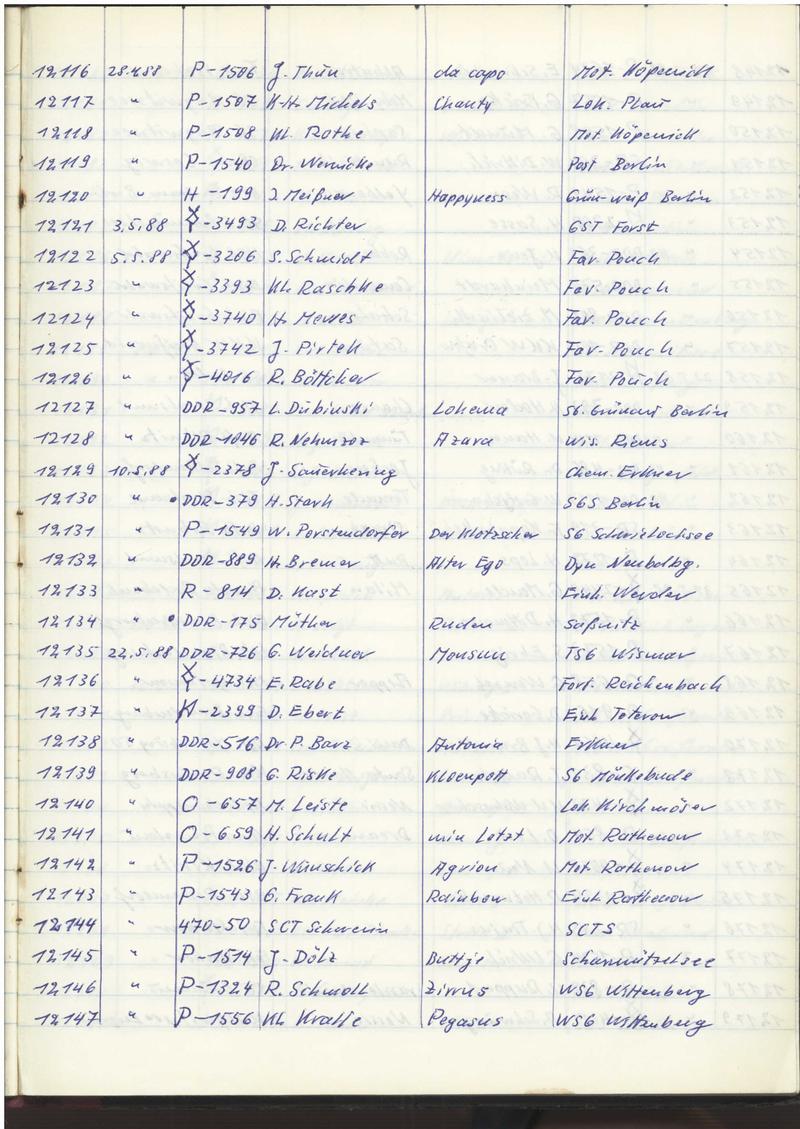 12116 28.4.88 P-1506 J. Thun da capo Mot. Köpenick
12117 " P-1507 K-H. Michels Chanty Lok. Plau
12118 " P-1508 Kl. Rothe Mot. Köpenick
12119 " P-1540 Dr. Wernicke Post Berlin
12120 " H-199 J. Meißner Happyness Grün-weiß Berlin
12121 3.5.88 -3493 D. Richter GST Forst
12122 5.5.88 -3206 S. Schmidt Fav. Pouch
12123 " -3393 Kh. Raschke Fav. Pouch
12124 " -3740 H. Mewes Fav. Pouch
12125 " -3742 J. Pirtek Fav. Pouch
12126 " -4016 R. Böttcher Fav. Pouch
12127 " DDR-957 L. Dubinski Lohema SG. Grünau Berlin
12128 " DDR-1046 R. Azara Wis. Riems
12129 10.5.88 -2378 J. Sauerhering Chem. Erkner
12130 " DDR-379 H. Stark SGS Berlin
12131 " P-1549 W. Porstendorfer Der Klotzscher SG Schwielochsee
12132 " DDR-889 H. Bremer Alter Ego Dyn Neubdbg.
12133 " R-814 D. Kast Einh. Werder
12134 " DDR-175 Müther Ruden Saßnitz
12135 22.5.88 DDR-726 G. Weidner Monsun TSG Wismar
12136 " -4734 E. Rabe Fort. Reichenbach
12137 " H-2399 D. Ebert Einh Teterow
12138 " DDR-516 Dr P. Barz Antonia Erkner
12139 " DDR-908 G. Riske Kloenpott SG Mönkebude
12140 " O-657 M. Leiste Lok Kirchmöser
12141 " O-659 H. Schult min Letzt Mot. Rathenow
12142 " P-1526 J. Wunschick Agrion Mot. Rathenow
12143 " P-1543 G. Frank Rainbow Einh Rathenow
12144 " 470-50 SCT Schwerin SCTS
12145 " P-1514 J. Dölz Buttje Scharmützelsee
12146 " P-1324 R. Schmoll Zirrus WSG Wittenberg
12147 " P-1556 Kh Kratte Pegasus WSG Wittenberg